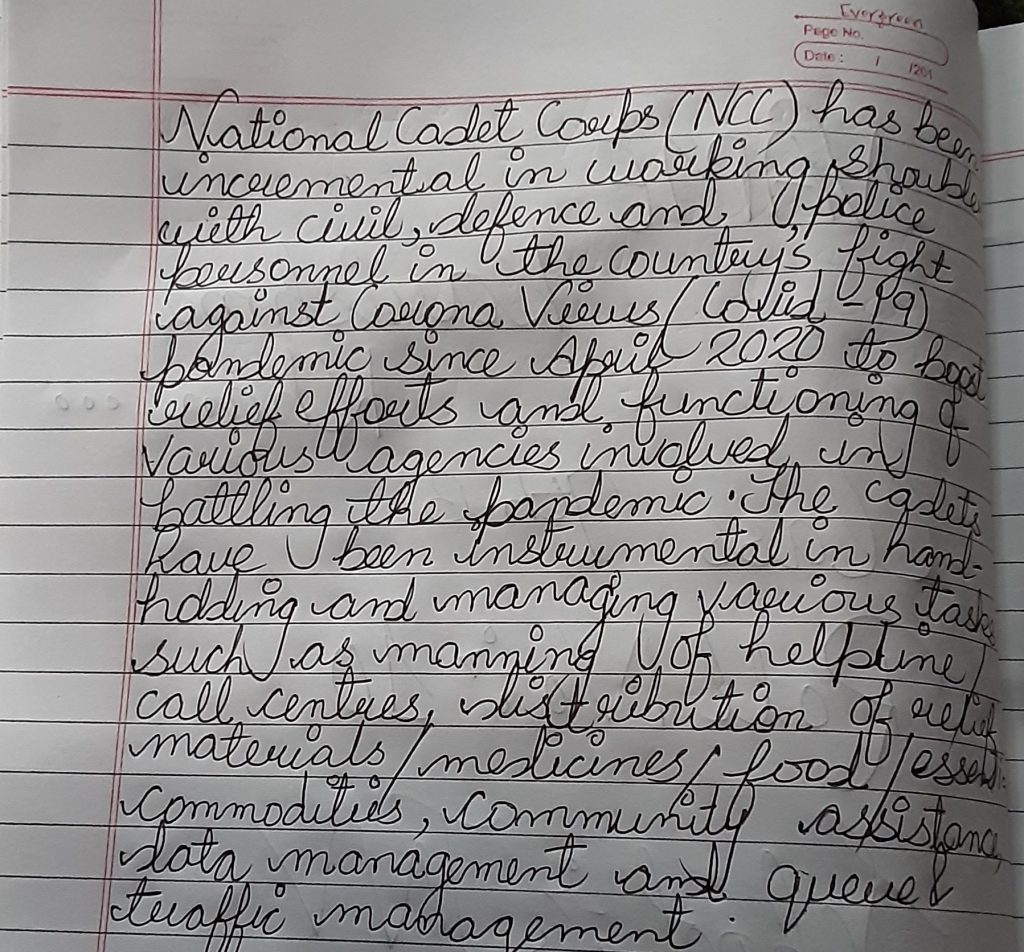 Evergreen
Page No.
Date : / /201
National Cadet Corps (NCC) has been
uncremental in working should
with civil, defence and police
personnel in the country's fight
against Corona Virus (Covid -19)
pandemic since April 2020 to boost
relief efforts and functioning of
various agencies involved in
battling the pandemic. The cadets
have been instrumental in hand-
holding and managing various tasks
such as manning of helpline/
call centres, distribution of relief
materials/medicines/food/essenti
commodities, community assistance,
data management and queue &
traffic management.